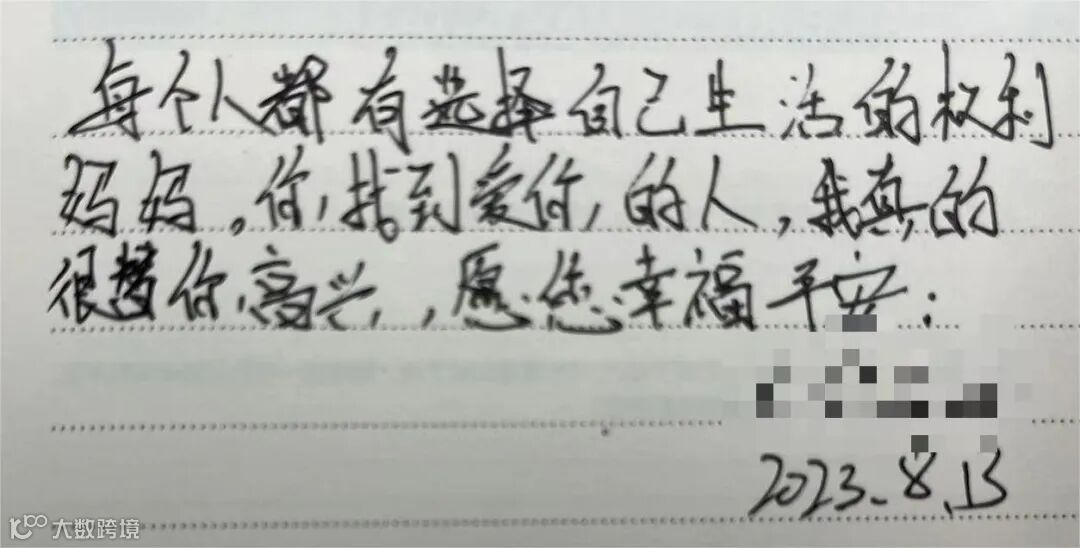 每个人都有选择自己生活的权利
妈妈。你找到爱你的人，我真的
很替你高兴，愿您幸福平安：
2023.8.13
大数跨境